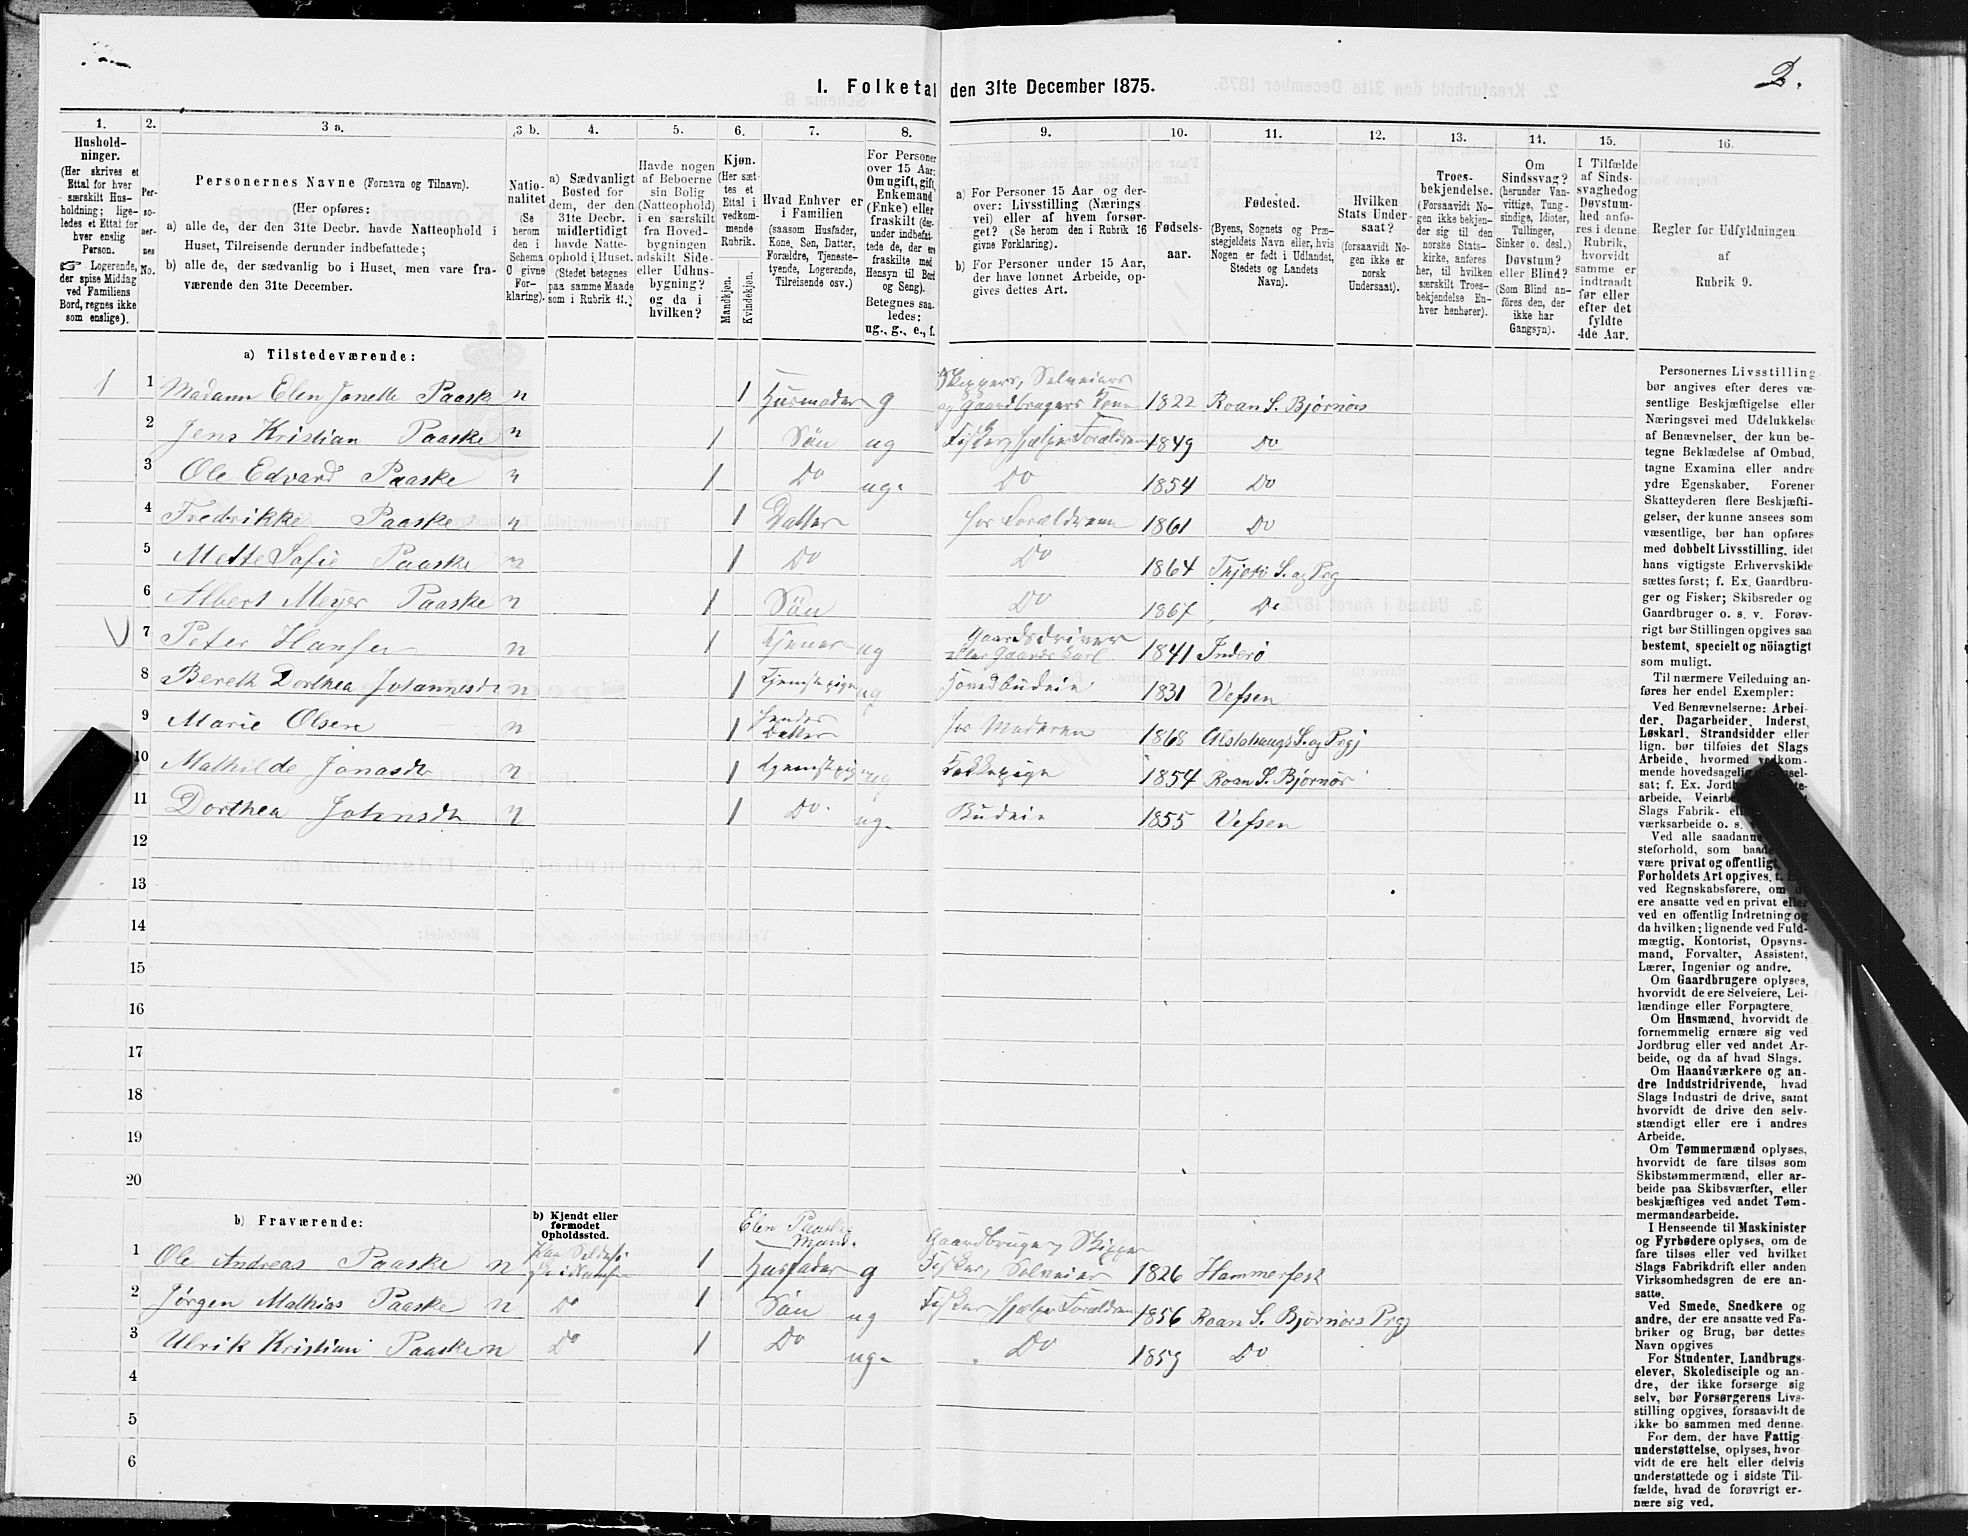 1. Folketal den 31te December 1875.
2.
1.
Hushold-
ninger.
(Her skrives et
Ettal for hver
særskilt Hus-
holdning; lige-
ledes et Ettal for
hver enslig
Person.
☞ Logerende,
der spise Middag
ved Familiens
Bord, regnes ikke
som enslige).
2.
Per-
so-
ner-
nes
No.
3 a.
Personernes Navne (Fornavn og Tilnavn).
(Her opføres:
a) alle de, der den 31te Decbr. havde Natteophold i
Huset, Tilreisende derunder indbefattede;
b) alle de, der sædvanlig bo i Huset, men vare fra-
værende den 31te December.
3 b.
Natio-
nalitet
(Se
herom
den i
Schema
C givne
For-
klaring).
4.
a) Sædvanligt
Bosted for
dem, der den
31te Decbr.
midlertidigt
havde Natte-
ophold i Huset.
(Stedet betegnes
paa samme Maade
som i Rubrik 11.)
5.
Havde nogen
af Beboerne
sin Bolig
(Natteophold)
i en særskilt
fra Hoved-
bygningen
adskilt Side-
eller Udhus-
bygning?
og da i
hvilken?
6.
Kjøn.
(Her sæt-
tes et
Ettal i
vedkom-
mende
Rubrik.
Mandkjøn.
Kvindekjøn.
7.
Hvad Enhver er
i Familien
(saasom Husfader,
Kone, Søn, Datter,
Forældre, Tjeneste-
tyende, Logerende,
Tilreisende osv.)
8.
For Personer
over 15 Aar:
Om ugift, gift,
Enkemand
(Enke) eller
fraskilt (der-
under indbefat-
tede de, der ere
fraskilte med
Hensyn til Bord
og Seng).
Betegnes saa-
ledes:
ug., g., e., f.
9.
a) For Personer 15 Aar og der-
over: Livsstilling (Nærings-
vei) eller af hvem forsør-
get? (Se herom den i Rubrik 16
givne Forklaring).
b) For Personer under 15 Aar,
der have lønnet Arbeide, op-
gives dettes Art.
10.
Fødsels-
aar.
11.
Fødested.
(Byens, Sognets og Præ-
stegjeldets Navn eller, hvis
Nogen er født i Udlandet,
Stedets og Landets
Navn).
12.
Hvilken
Stats Under-
saat?
(forsaavidt No-
gen ikke er
norsk
Undersaat).
13.
Troes-
bekjendelse.
(Forsaavidt No-
gen ikke bekjen-
der sig til den
norske Stats-
kirke, anføres
her, til hvilken
særskilt Troes-
bekjendelse En-
hver henhører).
14.
Om
Sindssvag?
(herunder Van-
vittige, Tung-
sindige, Idioter,
Tullinger,
Sinker o. desl.)
Døvstum?
eller Blind?
(Som Blind an-
føres den, der
ikke har
Gangsyn).
15.
I Tilfælde
af Sinds-
svaghed og
Døvstum-
hed anfø-
res i denne
Rubrik,
hvorvidt
samme er
indtraadt
før eller
efter det
fyldte
4de Aar.
16.
Regler for Udfyldningen
af
Rubrik 9.
a) Tilstedeværende:
1 1 Madam Elen Janette Paaske n 1 Husmoder g Skippers, Selveiers og Gaardbrugers Kone 1822 Roan S. Bjørnørs
2 Jens Kristian Paaske n 1 Søn ug Fisker, hjelper Forældrene 1849 Do
3 Ole Edvard Paaske n 1 Do ug. Do 1854 Do
4 Fredrikke Paaske n 1 Datter hos Forældrene 1861 Do
5 Mette Sofie Paaske n 1 Do Do 1864 Thjøtø S. og Prg
6 Albert Meyer Paaske n 1 Søn Do 1867 Do
7 Peter Hansen n 1 Tjener ug Gaardsdriver eller Gaards Karl 1841 Inderø
8 Bereth Dorthea Johannesdt n 1 Tjenstepige ug Hovedbudeie 1831 Vefsen
9 Marie Olsen n 1 Hendes Datter hos Moderen 1868 Alstahaugs S. og Prgj
10 Mathilde Jonasdt n 1 Tjenstepige ug Kokkepige 1854 Roan S. Bjørnør
11 Dorthea Johnsdt n 1 Do. ug. Budeie 1855 Vefsen
12
13
14
15
16
17
18
19
20
b) Fraværende:
b) Kjendt eller
formodet
Opholdssted.
1 Ole Andreas Paaske n 1 Elen Paaskes Mand. Husfader g Gaardbruger, Skipper Fisker, Selveier 1826 Hammerfest
2 Jørgen Mathias Paaske n Do 1 Søn ug Fisker hjelper Forældrene 1856 Roan S. Bjørnørs Prgj
3 Ulrik Kristian Paaske n Do 1 Do ug. Do 1859 Do
4
5
6
Personernes Livsstilling
bør angives efter deres væ-
sentlige Beskjæftigelse eller
Næringsvei med Udelukkelse
af Benævnelser, der kun be-
tegne Beklædelse af Ombud,
tagne Examina eller andre
ydre Egenskaber. Forener
Skatteyderen flere Beskjæfti-
gelser, der kunne ansees som
væsentlige, bør han opføres
med dobbelt Livsstilling, idet
hans vigtigste Erhvervskilde
sættes først; f. Ex. Gaardbru-
ger og Fisker; Skibsreder og
Gaardbruger o. s. v. Forøv-
rigt bør Stillingen opgives saa
bestemt, specielt og nöiagtigt
som muligt.
Til nærmere Veiledning an-
føres her endel Exempler:
Ved Benævnelserne: Arbei-
der, Dagarbeider, Inderst,
Løskarl, Strandsidder eller
lign. bør tilføies det Slags
Arbeide, hvormed vedkom-
mende hovedsagelig
sat; f. Ex.
arbeide,
Slags Fabrik-
værksarbeide o. s.
Ved alle saadanne
steforhold, som baade
være privat og offentligt,
Forholdets Art opgives,
ved Regnskabsførere, om
ere ansatte ved en privat eller
ved en offentlig Indretning og
da hvilken; lignende ved Fuld-
mægtig, Kontorist, Opsyns-
mand, Forvalter, Assistent,
Lærer, Ingeniør og andre.
Om Gaardbrugere oplyses,
hvorvidt de ere Selveiere, Lei-
lændinge eller Forpagtere.
Om Husmænd, hvorvidt de
fornemmelig ernære sig ved
Jordbrug eller ved andet Ar-
beide, og da af hvad Slags.
Om Haandværkere og an-
dre Industridrivende, hvad
Slags Industri de drive, samt
hvorvidt de drive den selv-
stændigt eller ere i andres
Arbeide.
Om Tømmermænd oplyses,
hvorvidt de fare tilsøs som
Skibstømmermænd, eller ar-
beide paa Skibsværfter, eller
beskjæftiges ved andet Tøm-
mermandsarbeide.
I Henseende til Maskinister
og Fyrbødere oplyses, om de
fare tilsøs eller ved hvilket
Slags Fabrikdrift eller anden
Virksomhedsgren de ere an-
satte.
Ved Smede, Snedkere og
andre, der ere ansatte ved Fa-
briker og Brug, bør dettes
Navn opgives
For Studenter, Landbrugs-
elever, Skoledisciple og an-
dre, der ikke forsørge sig
selv, bør Forsørgerens Livs-
stilling opgives, forsaavidt de
ikke bo sammen med denne.
For dem, der have Fattig-
understøttelse, oplyses, hvor-
vidt de ere helt eller delvis
understøttede og i sidste Til-
fælde, hvad de forøvrigt er-
nære sig ved.